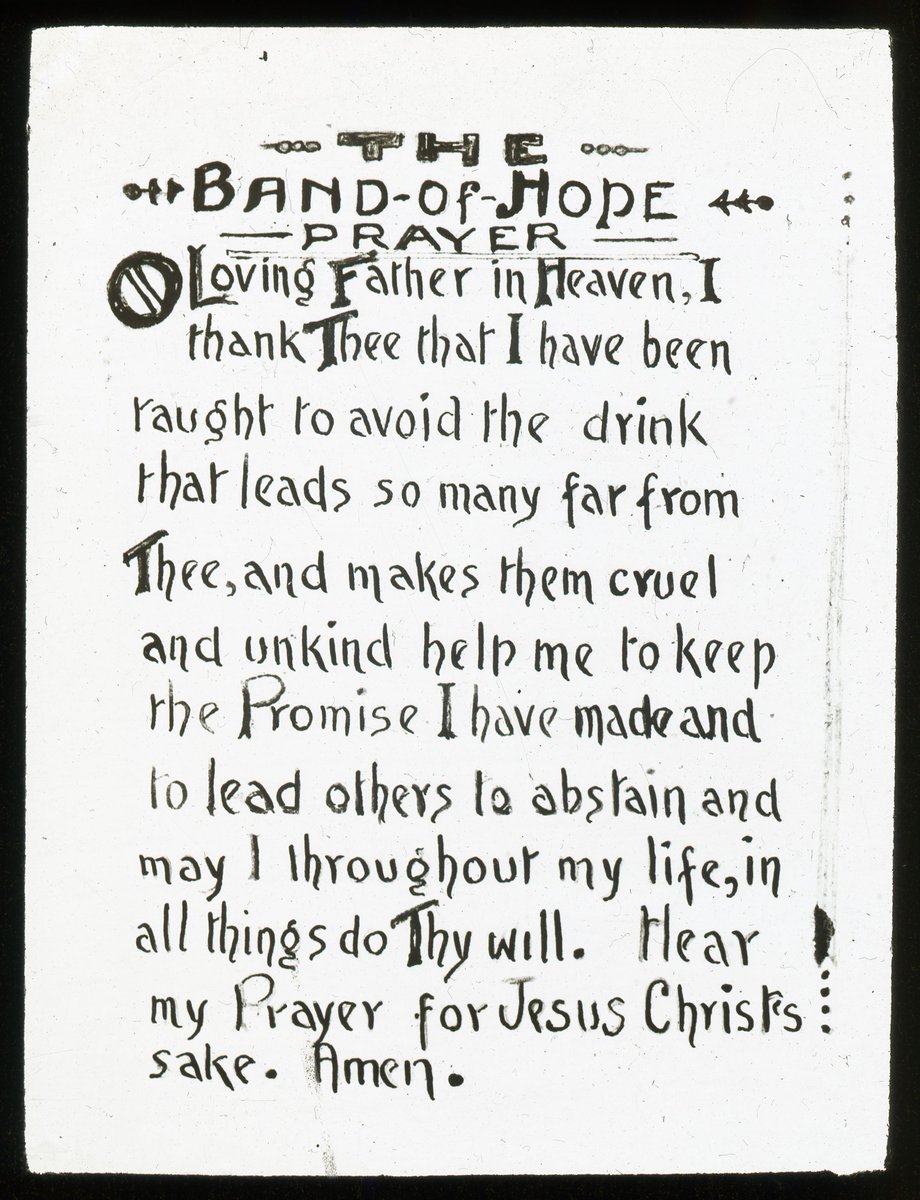 THE
BAND-OF-HOPE
PRAYER
O Loving Father in Heaven, I
thank Thee that I have been
taught to avoid the drink
that leads so many far from
Thee, and makes them cruel
and unkind help me to keep
the Promise I have made and
to lead others to abstain and
may I throughout my life, in
all things do Thy will. Hear
my Prayer for Jesus Christ's
sake. Amen.